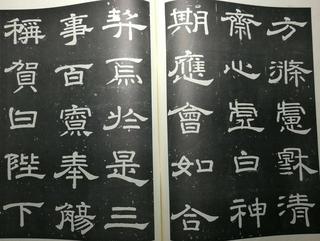 方滌慮穆清
齋心虛白神
期應會如合
契焉於是三
事百寮奉觴
稱賀曰陛下